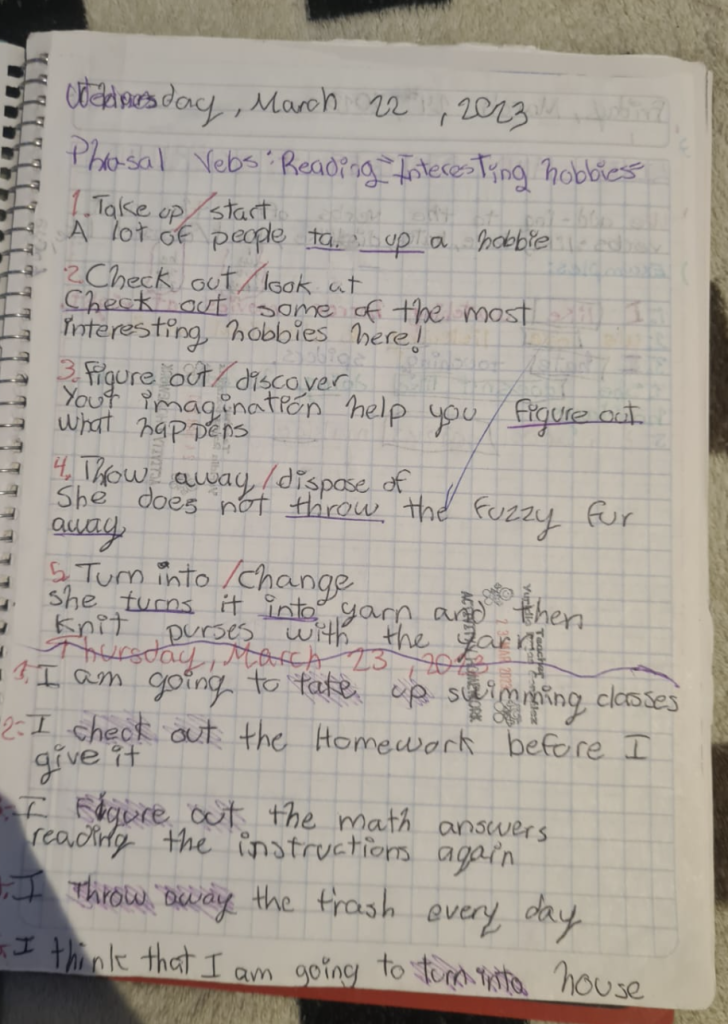 Wednesday, March 22, 2023
Phrasal Vebs: Reading-Interesting hobbies
1. Take up/start
A lot of people ta.. up a hobbie
2. Check out/look at
Check out some of the most
interesting hobbies here!
3. Figure out/discover
Your imaginatión help you figure out
what happens
4. Throw away/dispose of
She does not throw the fuzzy fur
away
5. Turn into/change
she turns it into yarn and then
knit purses with the yarn
Thursday, March 23, 2023
1. I am going to take up swimming classes
2. I check out the Homework before I
give it
I Figure out the math answers
reading the instructions again
I Throw away the trash every day
I think that I am going to turn into house